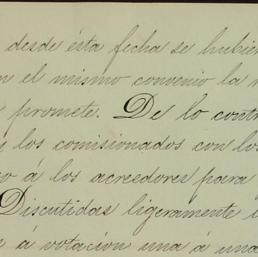 desde ésta fecha se hubie
n el mismo convenio la
promete. De lo contr
y los comisionados con los
o á los acreedores para
Discutidas ligeramente
á votación una á una